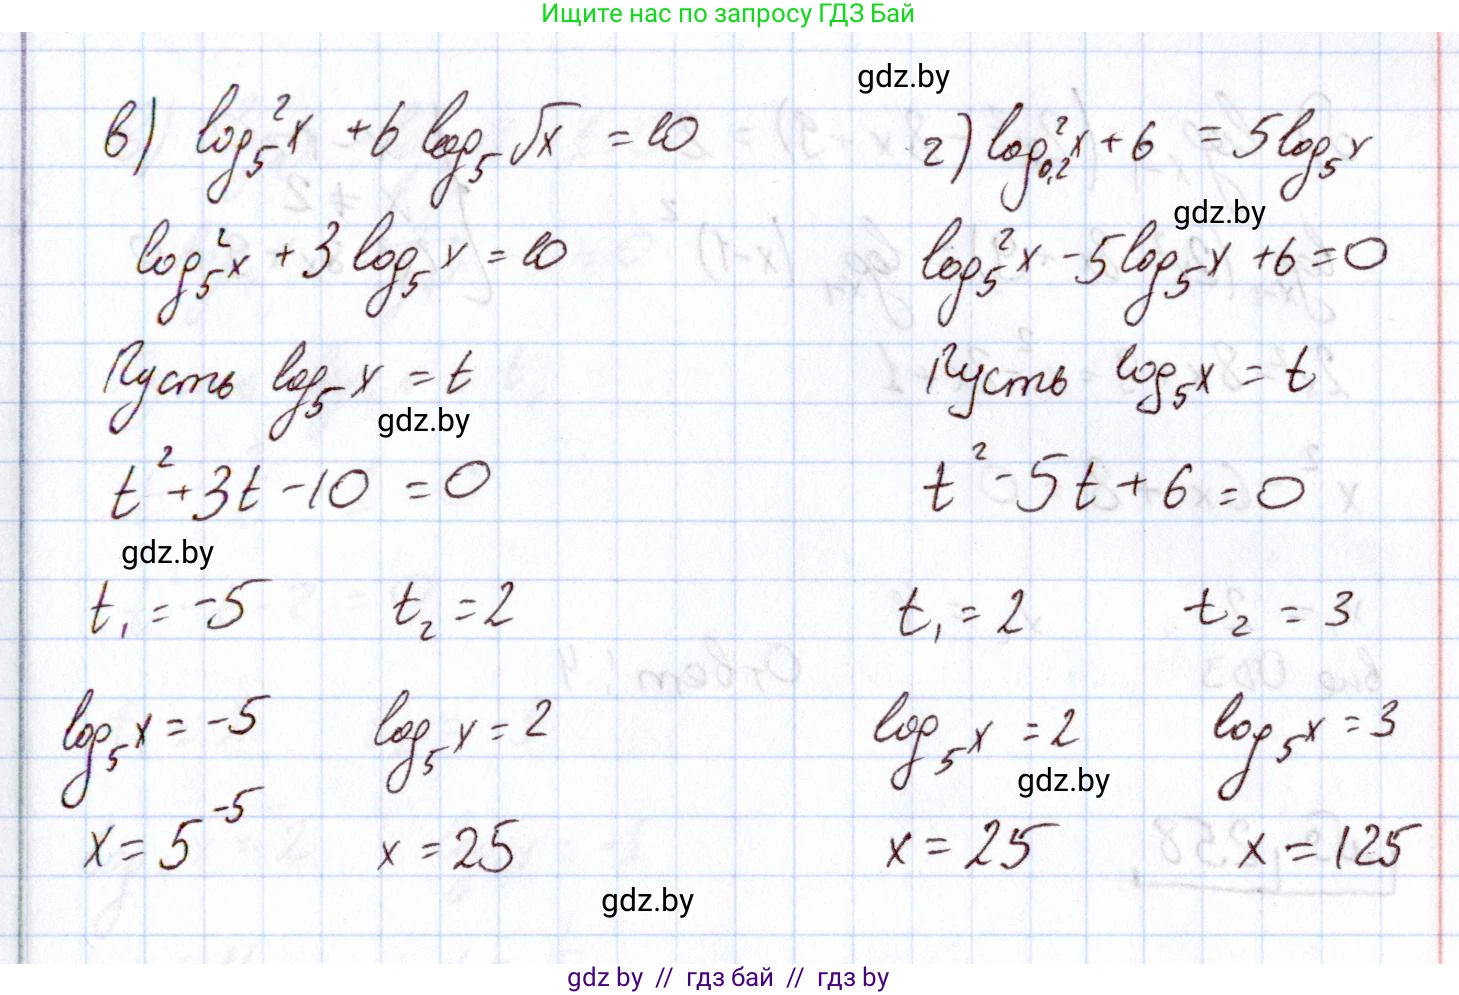 Ищите нас по запросу ГДЗ Бай
gdz.by
в) log₅²x + 6 log₅√x = 10
log₅²x + 3 log₅x = 10
Пусть log₅x = t
gdz.by
t² + 3t - 10 = 0
gdz.by
t₁ = -5 t₂ = 2
log₅x = -5 log₅x = 2
x = 5⁻⁵ x = 25
г) log₀,₂²x + 6 = 5 log₅x
gdz.by
log₅²x - 5 log₅x + 6 = 0
Пусть log₅x = t
t² - 5t + 6 = 0
t₁ = 2 t₂ = 3
log₅x = 2 log₅x = 3
gdz.by
x = 25 x = 125
gdz.by
gdz by // гдз бай // гдз by